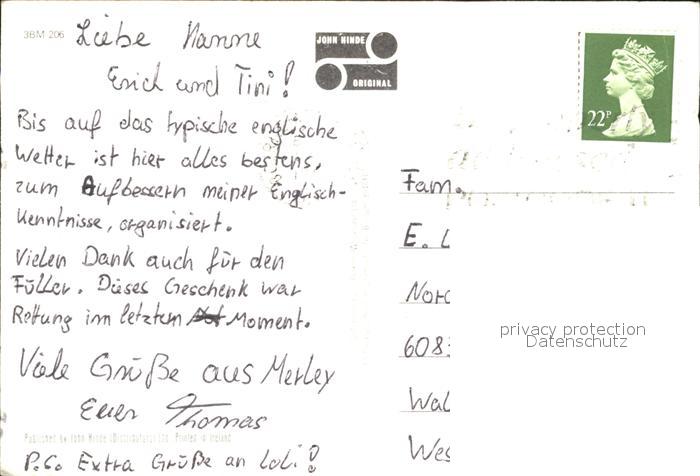 3BM 206
Liebe Nanne
Erich und Tini!
JOHN HINDE
ORIGINAL
22P
Bis auf das typische englische
Wetter ist hier alles bestens,
zum Aufbessern meiner Englisch-
kenntnisse, organisiert.
Vielen Dank auch für den
Füller. Dieses Geschenk war
Rettung im letztem Moment.
Viele Grüße aus Merley
Euer Thomas
Published by John Hinde (Distributors) Ltd. Printed in Ireland
P.S. Extra Grüße an Loli!
Fam.
E. L
Nord
608
Wal
Wes
privacy protection
Datenschutz